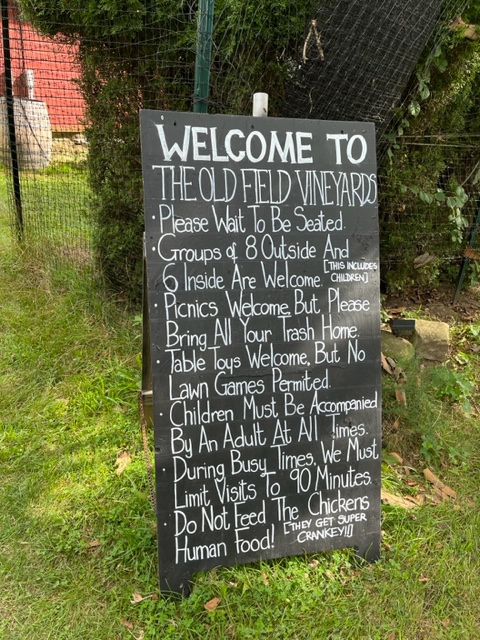 WELCOME TO
THE OLD FIELD VINEYARDS
• Please Wait To Be Seated.
• Groups of 8 Outside And
6 Inside Are Welcome. [THIS INCLUDES
CHILDREN]
• Picnics Welcome, But Please
Bring All Your Trash Home.
• Table Toys Welcome, But No
Lawn Games Permitted.
• Children Must Be Accompanied
By An Adult At All Times.
• During Busy Times, We Must
Limit Visits To 90 Minutes.
• Do Not Feed The Chickens
Human Food! [THEY GET SUPER
CRANKEY!!]